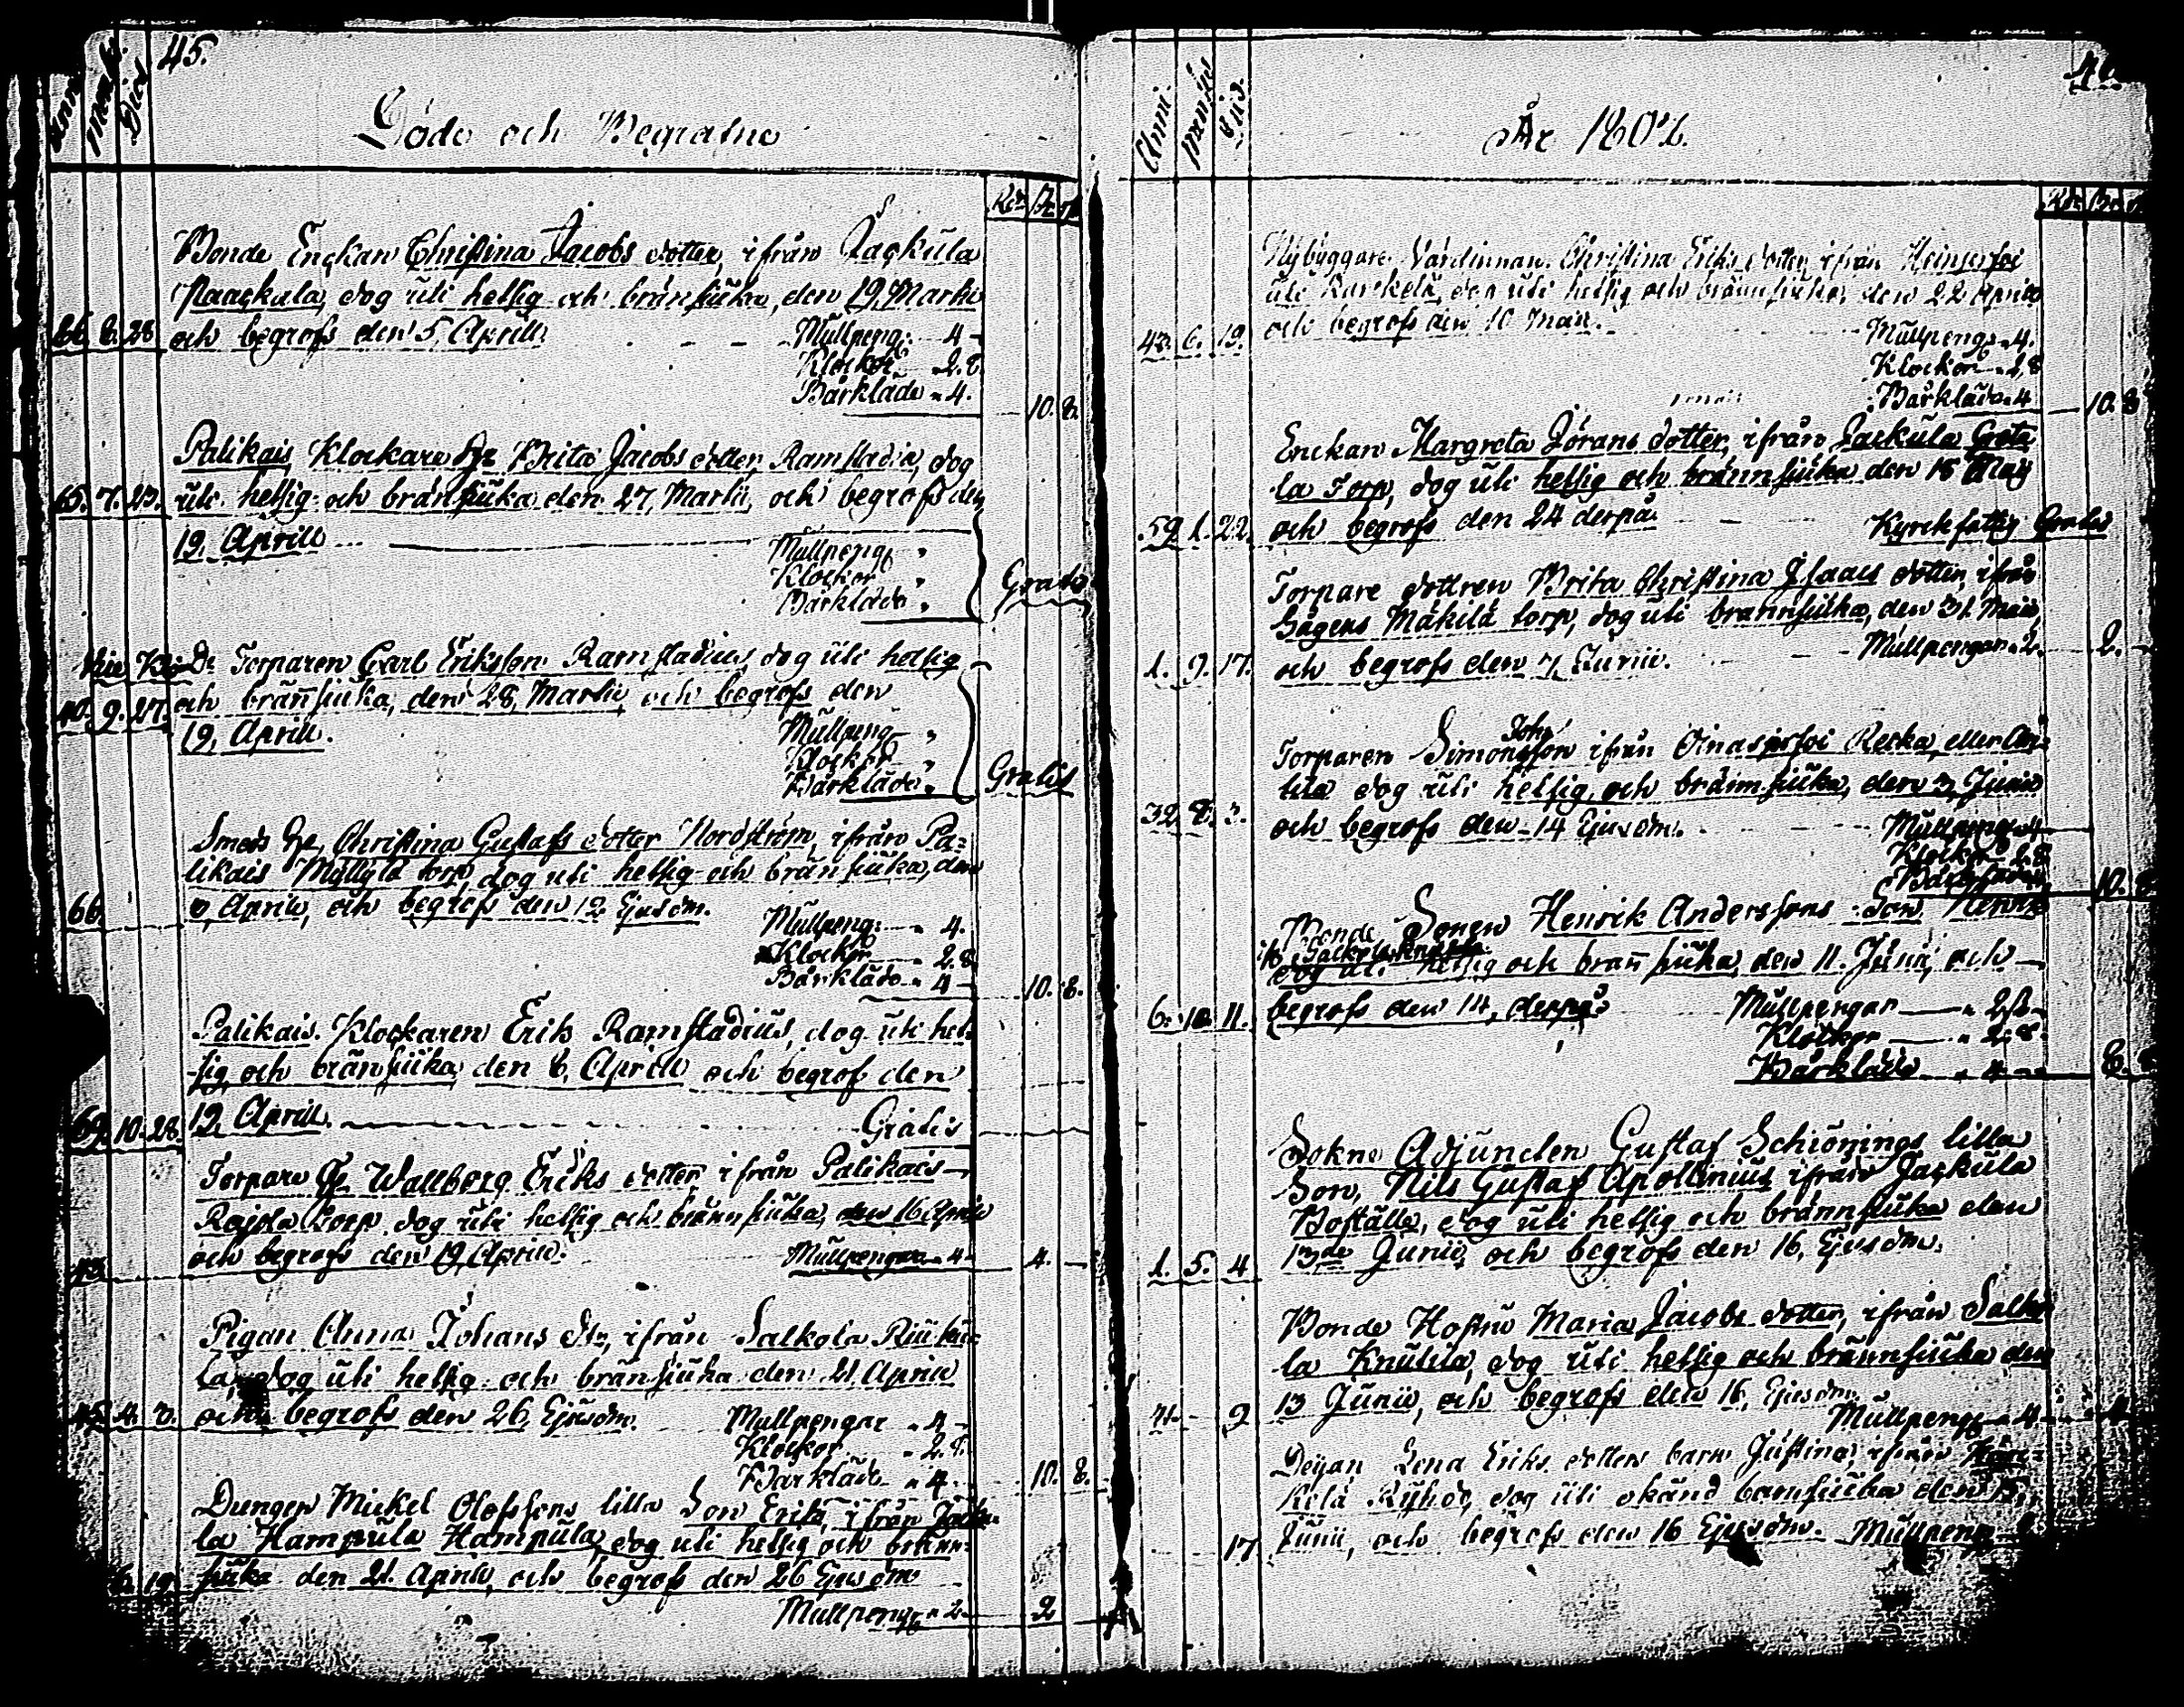 45.
Döde och Begrafne
Bonde Enckan Christina Jacobs dotter, ifrån Jackula
Paackala, dog uti hetsig och bränsiuka, den 19, Martii
och begrofs den 5, Aprill. Mullpeng: 4
Klockor 2. 8.
Bårkläde 4.
10. 8.
Palikais Klockare Hu Brita Jacobs dotter Ramstadia, dog
65. 7. 23. uti hetsig och bränsiuka den 27, Martii, och begrofs den
19, Aprill
Mullpeng
Klockor
Bårkläde
Gratis
De Torparen Carl Eriksson Ramstadius, dog uti hetsig
40. 9. 27. och bränsiuka, den 28, Martii, och begrofs den
19, Aprill.
Mullpeng
Klockor
Bårkläde
Gratis
Smeds Christina Gustafs dotter Nordström, ifrån Pa-
likais Myllylä torp, dog uti hetsig och bränsiuka, den
66. Aprill, och begrofs den 12 Ejusdm.
Mullpeng: 4.
Klockor 2. 8
Bårkläde 4
10. 8.
Palikais Klockaren Erik Ramstadius, dog uti het-
sig och bränsiuka den 6, Aprill och begrof den
69. 10. 28. 19, Aprill. Gratis
Torpare Wallborg Eriks dotter ifrån Palikais
Rajala torp dog uti hetsig och bränsiuka, den 16 Aprill
och begrofs den 19, Aprill. Mullpengar 4 4.
Pigan Anna Johans dtr, ifrån Salkola
la, dog uti hetsig och bränsiuka den 21, Aprill
och begrofs den 26, Ejusdm. Mullpengar 4
Klockor 2. 8.
Bårkläde 4.
10. 8.
Drengen Mickel Olofssons lilla Son Erik, ifrån Jacku-
la Hampula Hampula, dog uti hetsig och bränn-
siuka den 21. Aprill, och begrofs den 26 Ejusdm
Mullpeng 2 2
År 1807.
Nybyggare Värdinnan Christina Eriks dotter ifrån
uti dog uti hetsig och brännsiuka, den 22 Aprill
och begrofs den 10 Maii.
Mullpengr 4.
Klockor 2. 8
Bårkläde 4
10. 8
Enckan Margreta Jörans dotter, ifrån Jackula
la Torp, dog uti hetsig och brännsiuka den 15 Maij
59. 1. 22. och begrofs den 24 derpå. Kyrckfattig Gratis
Torpare dottren Brita Christina Isaacs dotter, ifrån
Sågens Mäkilä torp, dog uti brännsiuka, den 31. Maii,
1. 9. 17. och begrofs den 7, Junii. Mullpengar 2. 2.
Joh:
Torparen Simonsson ifrån eller An-
tila dog uti hetsig och brännsiuka, den 3, Junii
32. 8. 3. och begrofs den 14 Ejusdm. Mullpengr 4
Klockor 2. 8
Bårkläde
10. 8
Bonde Sonen Henrik Anderssons Son Henrik
dog uti hetsig och brännsiuka, den 11. Junii, och
6. 10. 11. begrofs den 14, derpå.
Mullpengar 2
Klockor 2. 8.
Bårkläde 4
8.
Sokne Adjuncten Gustaf Schrönings lilla
Son, Nils Gustaf Apollonius ifrån Jackula
Boställe, dog uti hetsig och brännsiuka den
1. 5. 4 13de Junii, och begrofs den 16, Ejusdm.
Bonde Hustru Maria Jacobs dotter, ifrån Salko
la Knutila, dog uti hetsig och brännsiuka den
13 Junii, och begrofs den 16, Ejusdm.
Mullpeng 4
Deijan Lena Eriks dotters barn Justina, ifrån
dog uti okänd barnsiucka den
17 Junii, och begrofs den 16 Ejusdm. Mullpeng